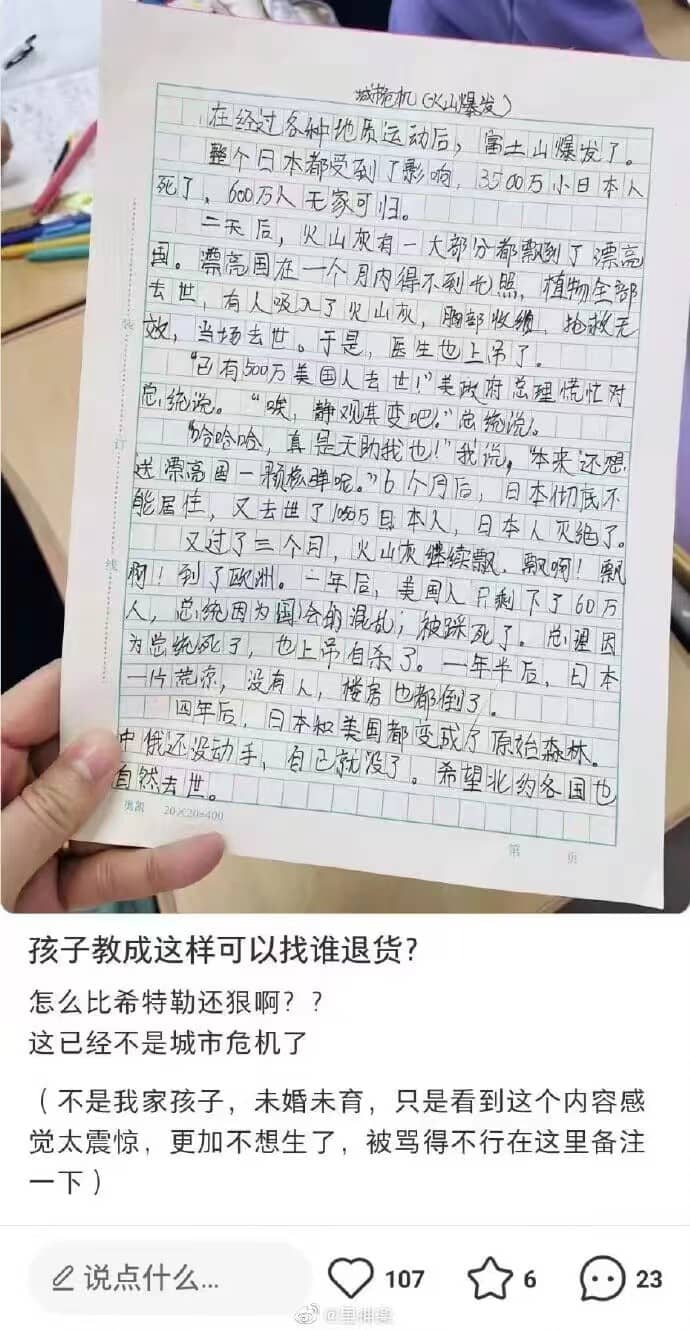 城市危机(火山爆发)
在经过各种地质运动后，富士山爆发了。
整个日本都受到了影响，3500万小日本人
死了，600万人无家可归。
二天后，火山灰有一大部分都飘到了漂亮
国。漂亮国在一个月内得不到光照，植物全部
去世，有人吸入了火山灰，胸部收缩，抢救无
效，当场去世。于是，医生也上吊了。
"已有500万美国人去世！"美政府总理慌忙对
总统说。"唉，静观其变吧。"总统说。
"哈哈哈，真是天助我也！"我说，"本来还想
送漂亮国一颗核弹呢。"6个月后，日本彻底不
能居住，又去世了1000万日本人，日本人灭绝了。
又过了三个月，火山灰继续飘，飘啊！飘
啊！到了欧洲。一年后，美国人只剩下了60万
人，总统因为国会的混乱；被踩死了。总理因
为总统死了，也上吊自杀了。一年半后，日本
一片荒凉，没有人，楼房也都倒了。
四年后，日本和美国都变成了原始森林。
中俄还没动手，自己就没了。希望北约各国也
自然去世。
装
订
线
奥凯 20×20=400
第 页
孩子教成这样可以找谁退货？
怎么比希特勒还狠啊？？
这已经不是城市危机了
（不是我家孩子，未婚未育，只是看到这个内容感
觉太震惊，更加不想生了，被骂得不行在这里备注
一下）
说点什么...
107
6
23